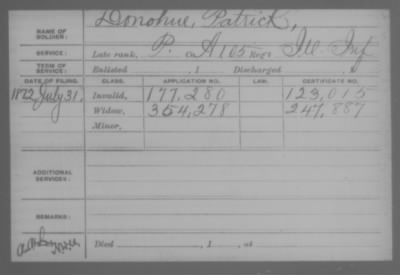 Donohue, Patrick,
NAME OF SOLDIER:
SERVICE: Late rank, P. Co. A 105 Reg't Ill. Inf
TERM OF SERVICE: Enlisted , 1 Discharged , 1
DATE OF FILING. CLASS. APPLICATION NO. LAW. CERTIFICATE NO.
1872, July 31, Invalid, 177,280 123,015
Widow, 354,278 247,887
Minor,
ADDITIONAL SERVICES:
REMARKS:
Died , 1 , at